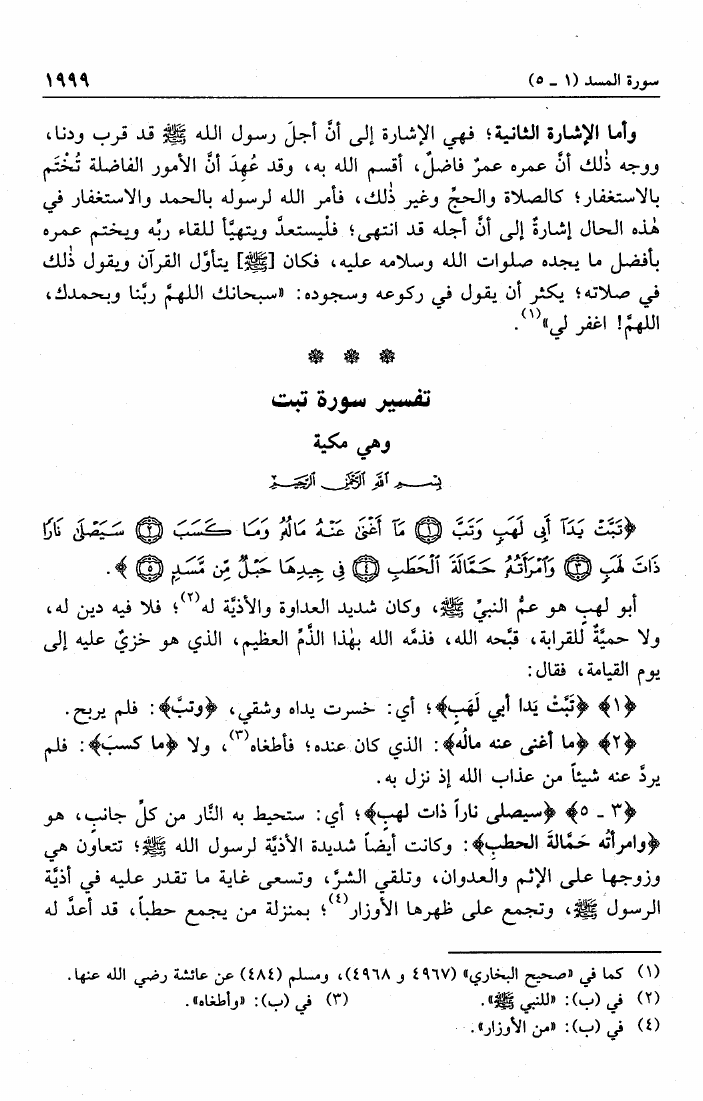 سورة المسد (١ ـ ٥)
١٩٩٩
وأما الإشارة الثانية؛ فهي الإشارة إلى أنَّ أجلَ رسول الله ﷺ قد قرب ودنا،
ووجه ذٰلك أنَّ عمره عمرٌ فاضلٌ، أقسم الله به، وقد عُهِدَ أنَّ الأمور الفاضلة تُخْتَم
بالاستغفار؛ كالصلاة والحجِّ وغير ذٰلك، فأمر الله لرسوله بالحمد والاستغفار في
هٰذه الحال إشارةٌ إلى أنَّ أجله قد انتهى؛ فلْيستعدَّ ويتهيَّأ للقاء ربِّه ويختم عمره
بأفضل ما يجده صلوات الله وسلامه عليه، فكان [ﷺ] يتأوَّل القرآن ويقول ذٰلك
في صلاته؛ يكثر أن يقول في ركوعه وسجوده: «سبحانك اللهمَّ ربَّنا وبحمدك،
اللهمَّ! اغفر لي»(١).
تفسير سورة تبت
وهي مكية
بِسْمِ اللَّهِ الرَّحْمَٰنِ الرَّحِيمِ
﴿تَبَّتْ يَدَآ أَبِي لَهَبٍ وَتَبَّ ١ مَآ أَغْنَىٰ عَنْهُ مَالُهُ وَمَا كَسَبَ ٢ سَيَصْلَىٰ نَارًا
ذَاتَ لَهَبٍ ٣ وَٱمْرَأَتُهُ حَمَّالَةَ ٱلْحَطَبِ ٤ فِي جِيدِهَا حَبْلٌ مِّن مَّسَدٍ ٥﴾.
أبو لهب هو عمُّ النبيِّ ﷺ، وكان شديد العداوة والأذيَّة له(٢)؛ فلا فيه دين له،
ولا حميَّةٌ للقرابة، قبَّحه الله، فذمَّه الله بهٰذا الذَّمِّ العظيم، الذي هو خزيٌ عليه إلى
يوم القيامة، فقال:
﴿١﴾ ﴿تَبَّتْ يَدا أبي لَهَبٍ﴾؛ أي: خسرت يداه وشقي، ﴿وتبَّ﴾: فلم يربح.
﴿٢﴾ ﴿ما أغنى عنه مالُه﴾: الذي كان عنده؛ فأطغاه(٣)، ولا ﴿ما كسبَ﴾: فلم
يردَّ عنه شيئاً من عذاب الله إذ نزل به.
﴿٣ ـ ٥﴾ ﴿سيصلى ناراً ذات لهبٍ﴾؛ أي: ستحيط به النَّار من كلِّ جانبٍ، هو
﴿وامرأتُه حَمَّالةَ الحطبِ﴾: وكانت أيضاً شديدة الأذيَّة لرسول الله ﷺ؛ تتعاون هي
وزوجها على الإثم والعدوان، وتلقي الشرَّ، وتسعى غاية ما تقدر عليه في أذيَّة
الرسول ﷺ، وتجمع على ظهرها الأوزار(٤)؛ بمنزلة من يجمع حطباً، قد أعدَّ له
(١) كما في «صحيح البخاري» (٤٩٦٧ و ٤٩٦٨)، ومسلم (٤٨٤) عن عائشة رضي الله عنها.
(٢) في (ب): «للنبي ﷺ». (٣) في (ب): «وأطغاه».
(٤) في (ب): «من الأوزار».